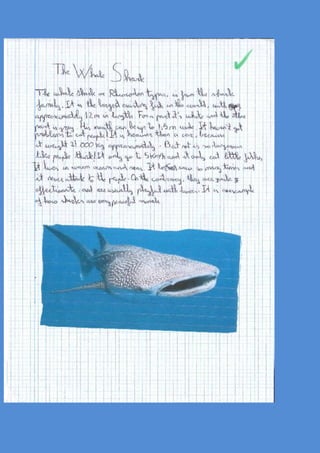 The Whale Shark
The whale shark or Rhincodon typus, is from the shark
family. It is the largest existing fish in the world, with
approximately 12 m in length. For a part it's white and the other
part is grey. His mouth can be up to 1,5 m wide. It hasn't got
problems to eat people! It is heavier than a car, because
it weight 21.000 kg approximately. But not is so dangerous
like people think! It only go to 5 km/h and it only eat little fishes.
It lives in warm oceans and seas. It before many times and
it never attack to the people. On the contrary, they are gentle &
affectionate and are usually playful with divers. It is an example
of how sharks are very peaceful animals.